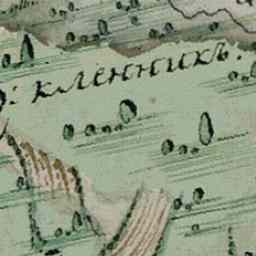 : кленникъ.